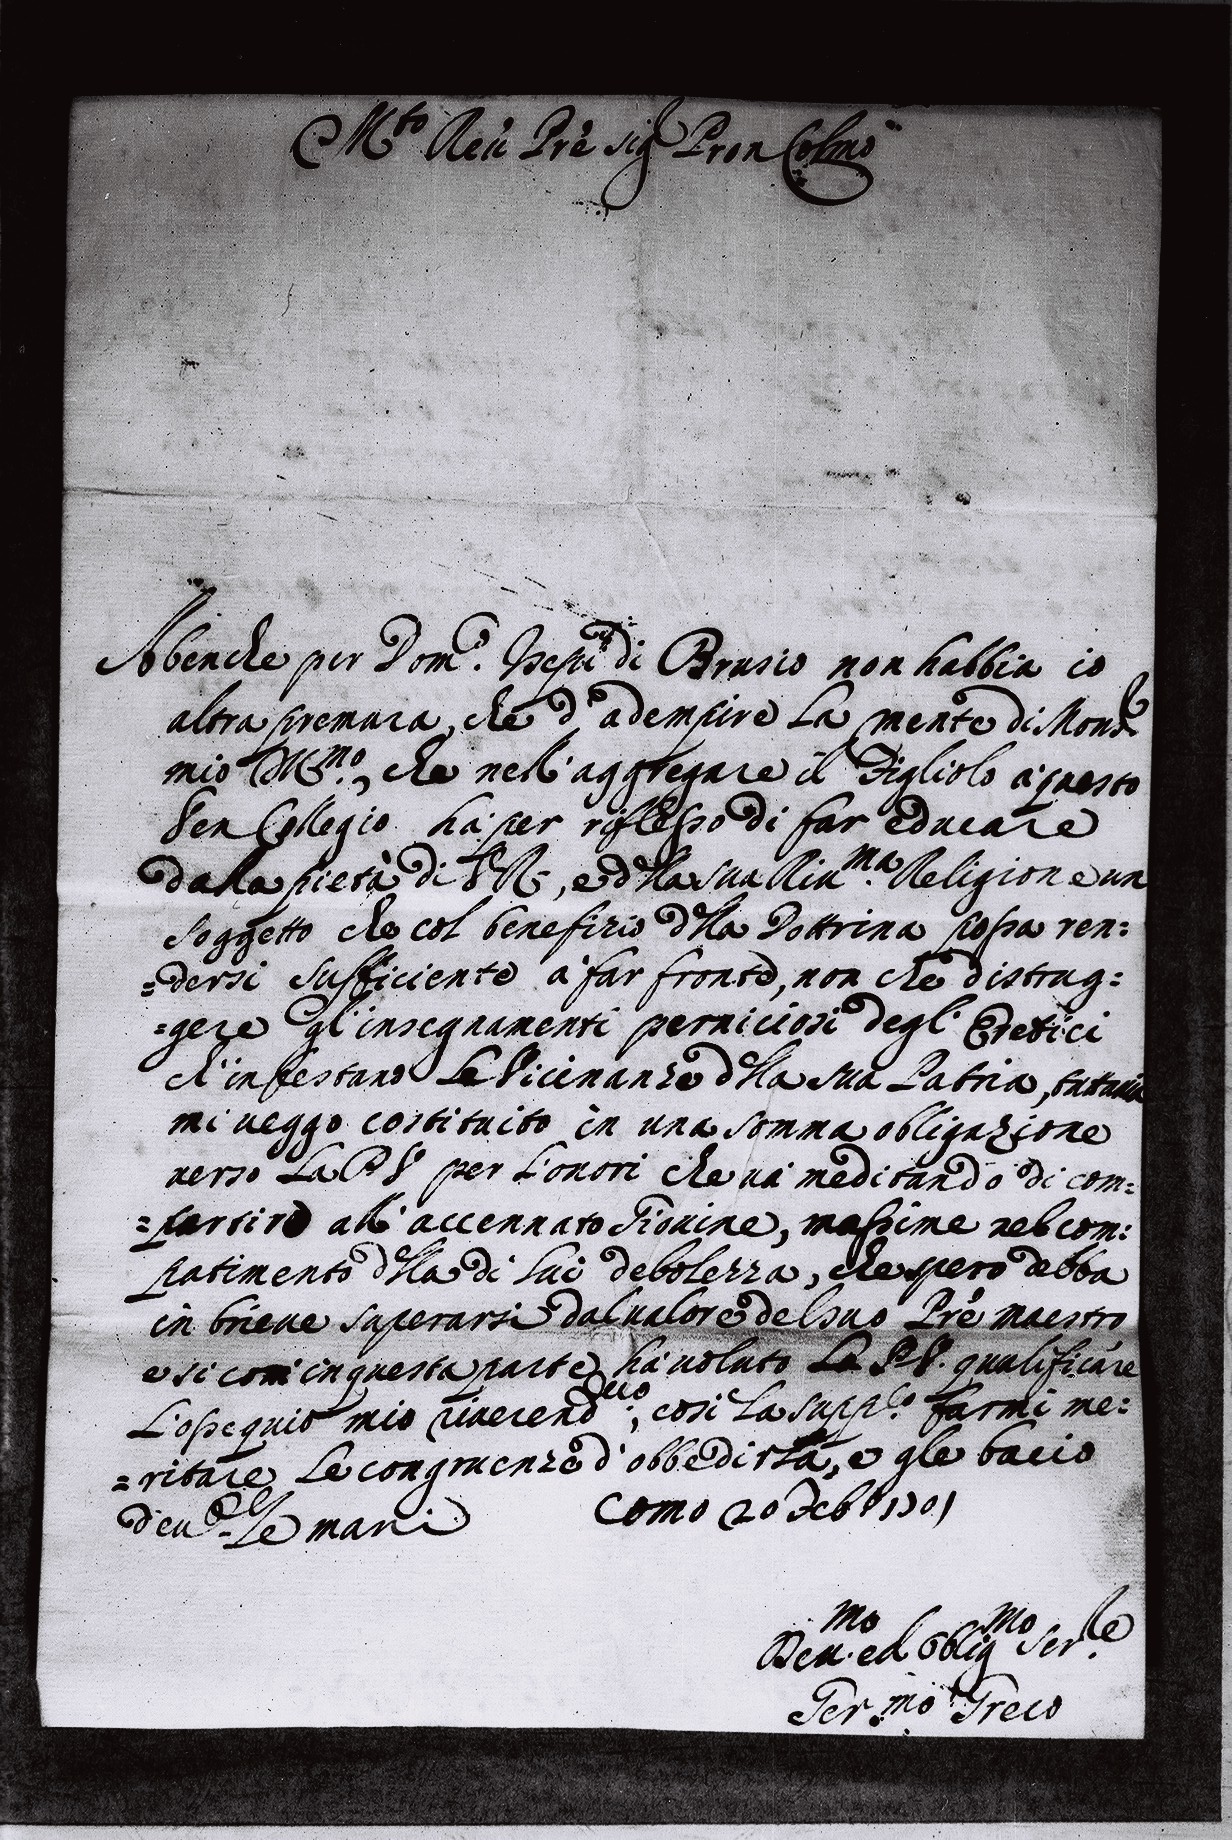 M.to Reu Prē sig Pron Colmo
Abenche per Dom.º di Brusio non habbia io
altra premura, che d'adempire La mente di Mons.r
mio R.mo, che nell'aggregare il Figliolo à questo
Ven Collegio hà per riflesso di far educare
dalla pietà di V R, e dlla sua Riu.ma Religione un
soggetto che col benefizio dlla Dottrina possa ren:
=dersi sufficiente à far fronte, non che distrug:
=gere gl'insegnamenti perniciosi degl'Eretici
ch'infestano Le Vicinanze dlla sua Patria, tuttauia
mi ueggo costituito in una somma obligazione
uerso La P V per L'onori che uà meditando di com:
=partire all'accennato Giouine, massime nel com:
patimento dlla di lui debolezza, che spero debba
in brieue superarsi dal ualore del suo Prē maestro
e si com' in questa parte hà uoluto La P.V. qualificare
L'ossequio mio riuerend.mo, così La supp.co farmi me:
=ritare Le congruenze d'obbedirla, e gle bacio
deu.te Le mani Como 20 Feb.º 1701
Deu.mo ed Oblig.mo Ser.le
Ger.mo Greco